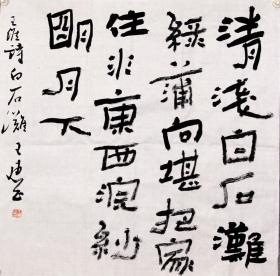 清淺白石灘
綠蒲向堪把家
住水東西浣紗
明月下
王維詩白石灘 王